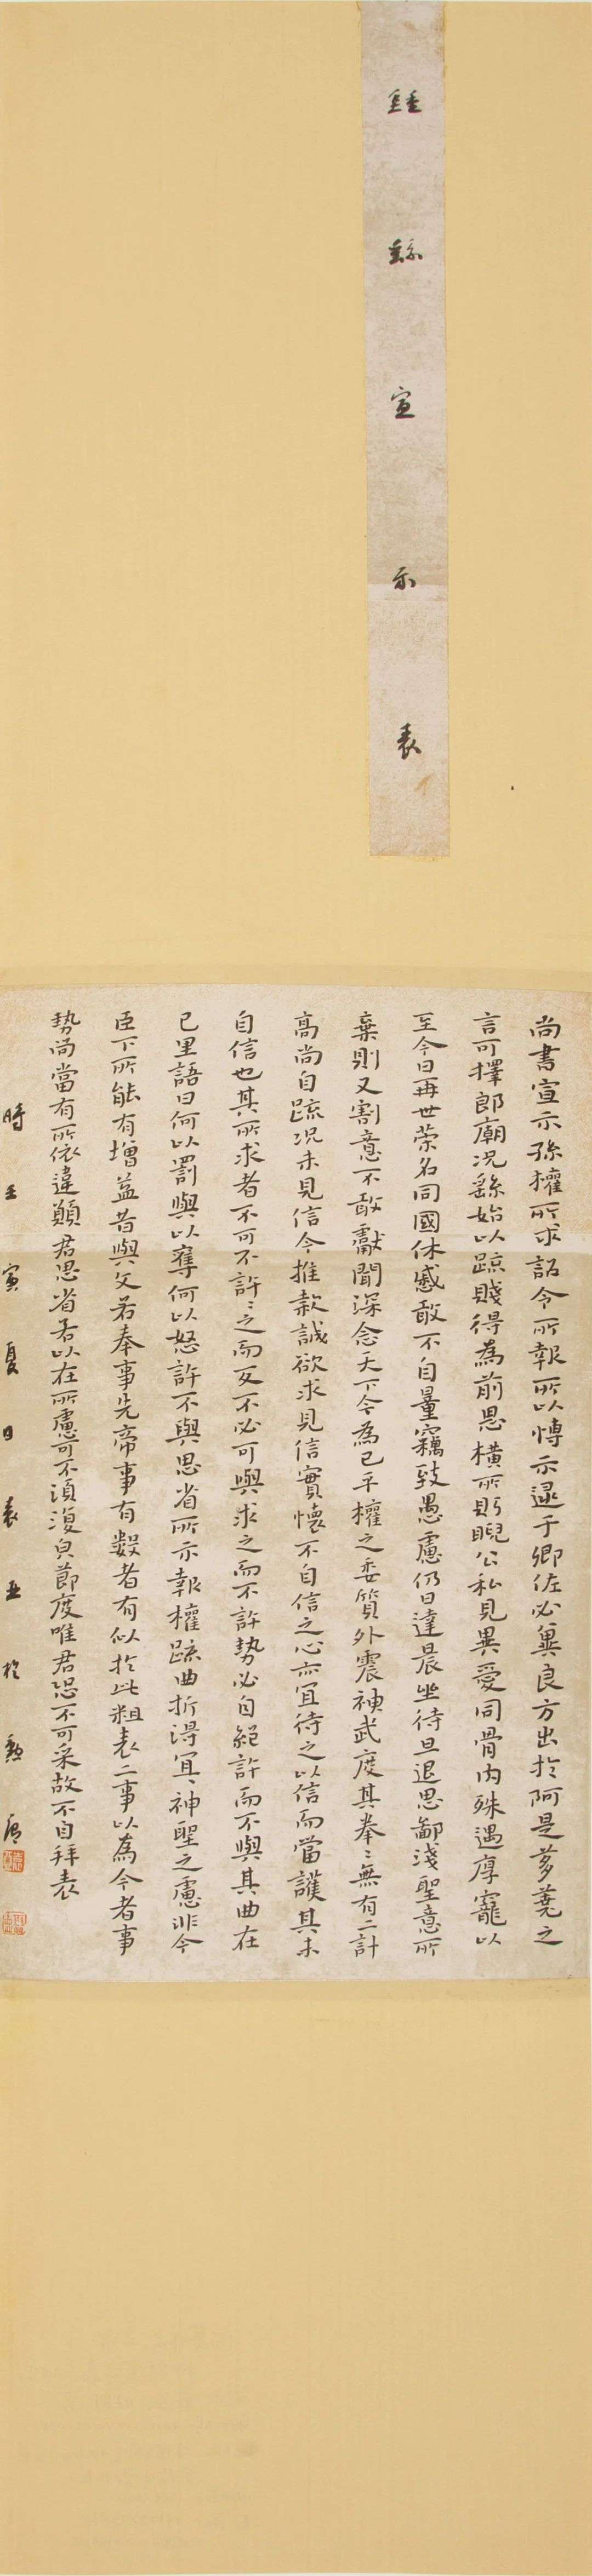 鍾繇宣示表
尚書宣示孫權所求詔令所報所以博示逮于卿佐必冀良方出於阿是芻蕘之
言可擇郎廟況繇始以疏賤得為前恩橫所眄睨公私見異愛同骨肉殊遇厚寵以
至今日再世榮名同國休慼敢不自量竊致愚慮仍日達晨坐待旦退思鄙淺聖意所
棄則又割意不敢獻聞深念天下今為已平權之委質外震神武度其拳〻無有二計
高尚自疏況未見信今推款誠欲求見信實懷不自信之心亦宜待之以信而當護其未
自信也其所求者不可不許〻之而反不必可與求之而不許勢必自絕許而不與其曲在
己里語曰何以罰與以奪何以怒許不與思省所示報權疏曲折得宜〻神聖之慮非今
臣下所能有增益昔與文若奉事先帝事有數者有似於此粗表二事以為今者事
勢尚當有所依違願君思省若以在所慮可不須復㒵節度唯君恐不可采故不自拜表
時壬寅夏日袁亞於